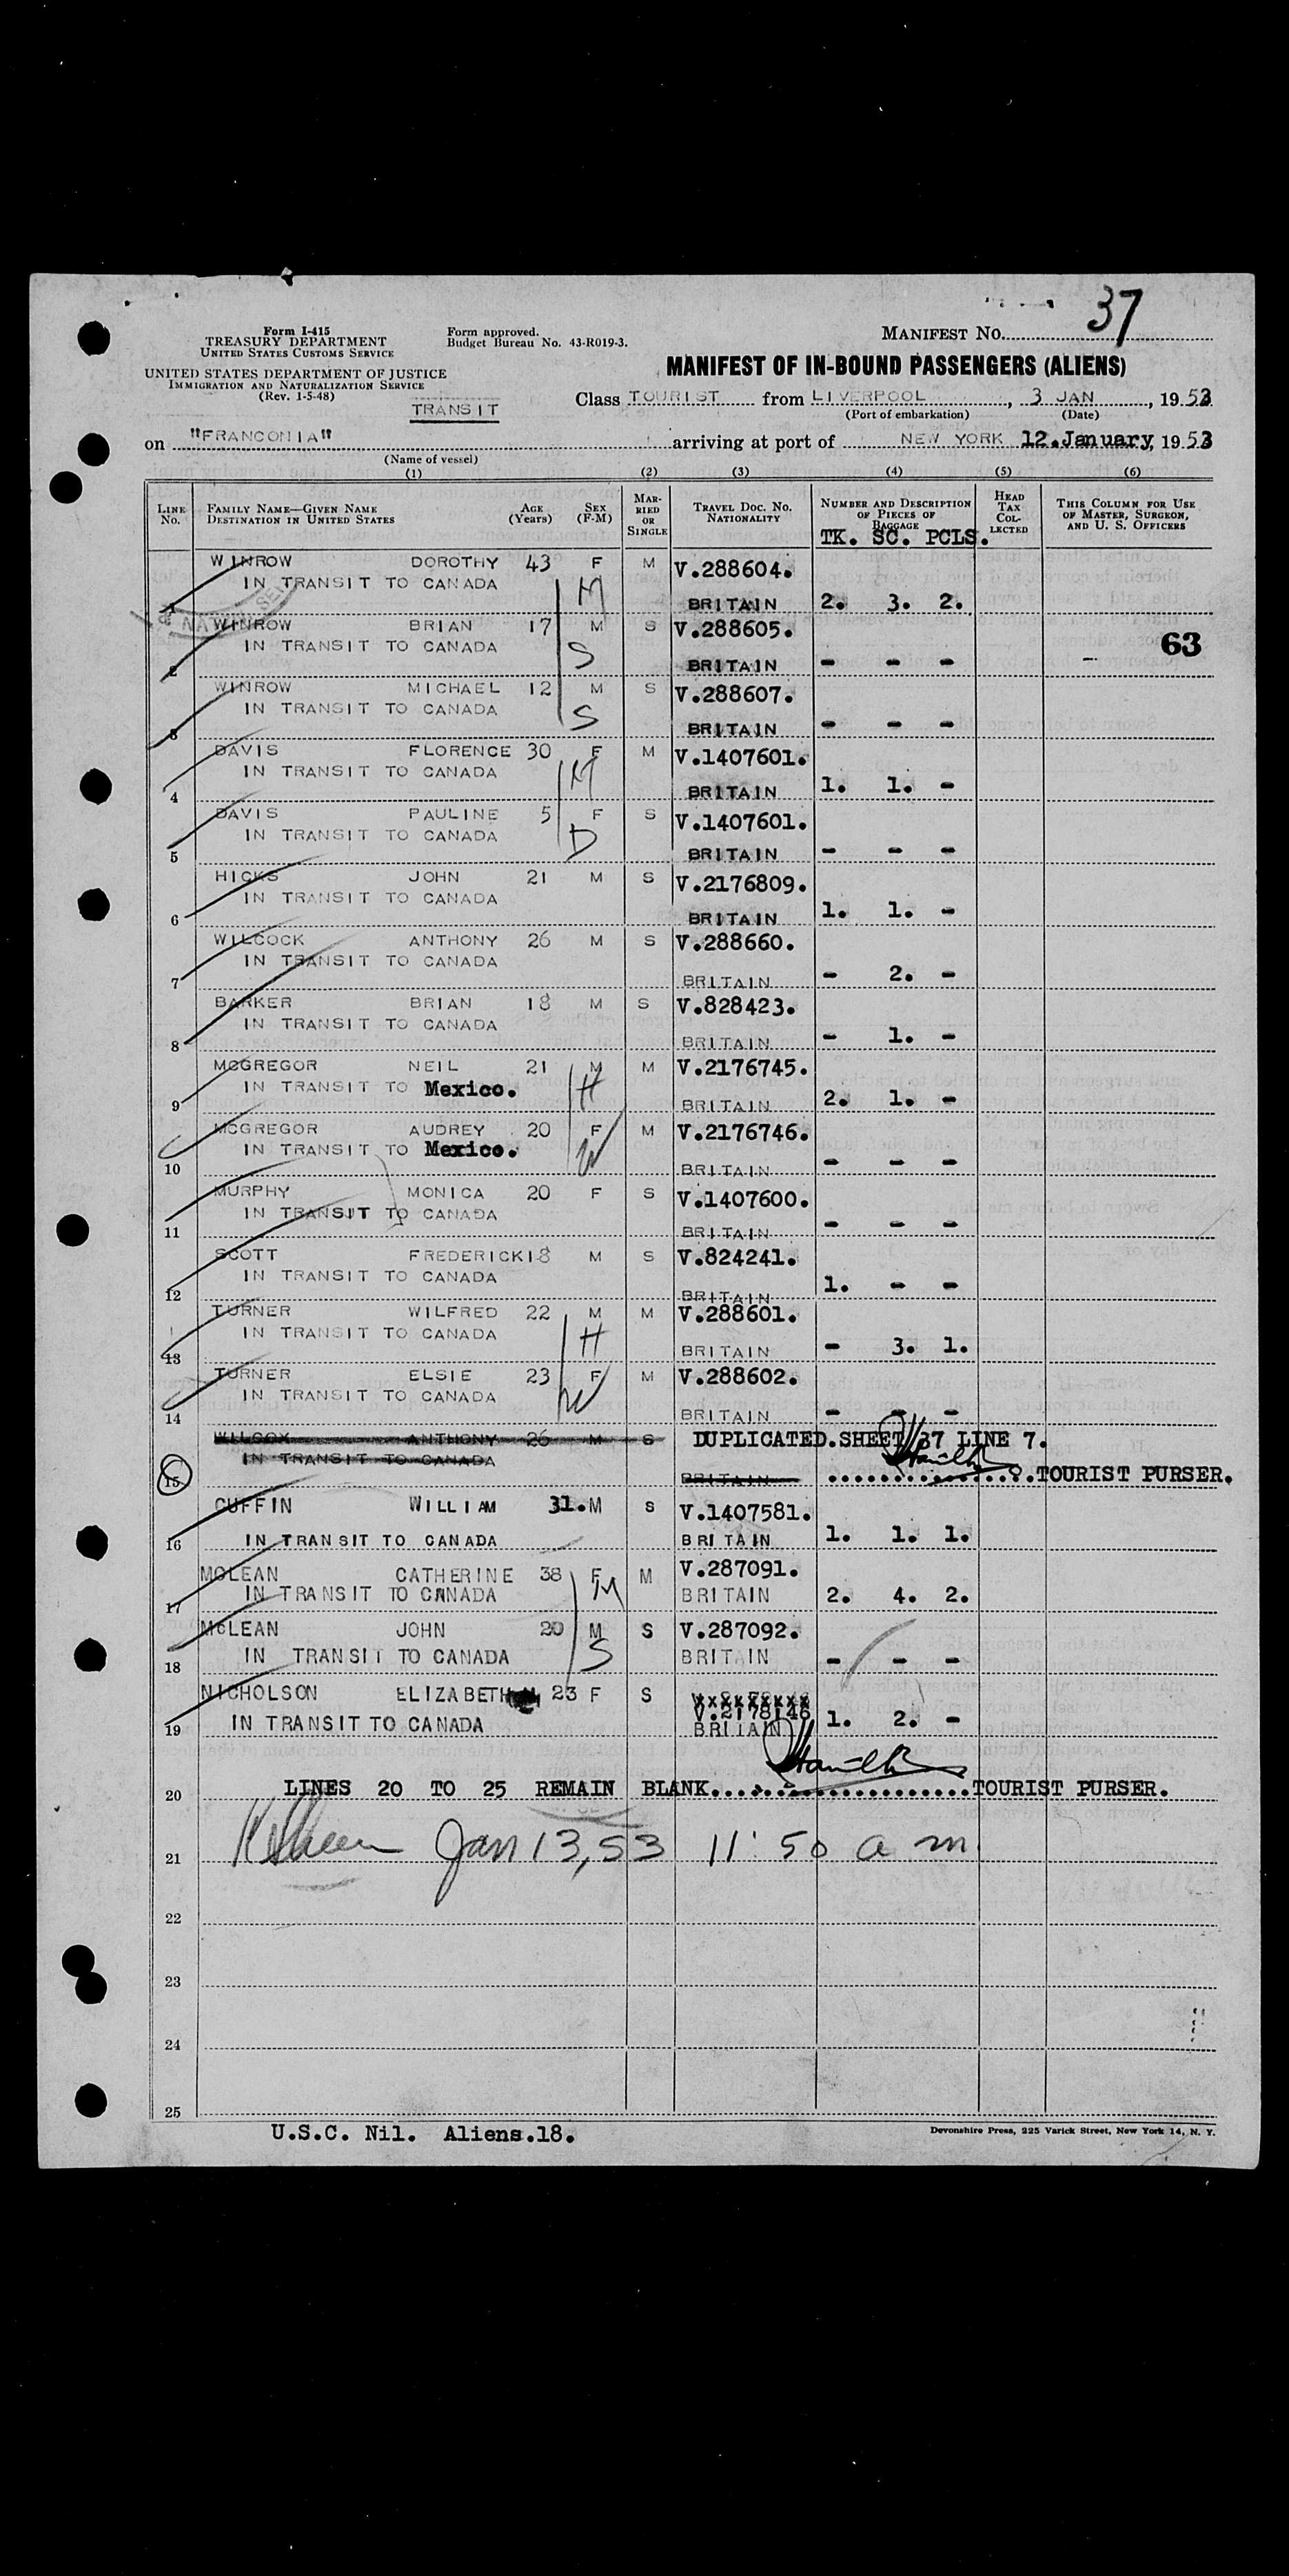 37
Form I-415
TREASURY DEPARTMENT
UNITED STATES CUSTOMS SERVICE
UNITED STATES DEPARTMENT OF JUSTICE
IMMIGRATION AND NATURALIZATION SERVICE
(Rev. 1-5-48)
Form approved.
Budget Bureau No. 43-R019-3.
MANIFEST NO.
MANIFEST OF IN-BOUND PASSENGERS (ALIENS)
TRANSIT
Class TOURIST from LIVERPOOL, 3 JAN, 1953
(Port of embarkation) (Date)
on "FRANCONIA" arriving at port of NEW YORK 12.January, 1953
(Name of vessel)
(1) (2) (3) (4) (5) (6)
LINE No. FAMILY NAME—GIVEN NAME DESTINATION IN UNITED STATES AGE (Years) SEX (F-M) MARRIED OR SINGLE TRAVEL DOC. NO. NATIONALITY NUMBER AND DESCRIPTION OF PIECES OF BAGGAGE HEAD TAX COLLECTED THIS COLUMN FOR USE OF MASTER, SURGEON, AND U. S. OFFICERS
TK. SC. PCLS.
WINROW DOROTHY 43 F M V.288604.
1 IN TRANSIT TO CANADA M BRITAIN 2. 3. 2.
WINROW BRIAN 17 M S V.288605. 63
2 IN TRANSIT TO CANADA S BRITAIN - - -
WINROW MICHAEL 12 M S V.288607.
3 IN TRANSIT TO CANADA S BRITAIN - - -
DAVIS FLORENCE 30 F M V.1407601.
4 IN TRANSIT TO CANADA M BRITAIN 1. 1. -
DAVIS PAULINE 5 F S V.1407601.
5 IN TRANSIT TO CANADA D BRITAIN - - -
HICKS JOHN 21 M S V.2176809.
6 IN TRANSIT TO CANADA BRITAIN 1. 1. -
WILCOCK ANTHONY 26 M S V.288660.
7 IN TRANSIT TO CANADA BRITAIN - 2. -
BARKER BRIAN 18 M S V.828423.
8 IN TRANSIT TO CANADA BRITAIN - 1. -
MCGREGOR NEIL 21 M M V.2176745.
9 IN TRANSIT TO Mexico. H BRITAIN 2. 1. -
MCGREGOR AUDREY 20 F M V.2176746.
10 IN TRANSIT TO Mexico. W BRITAIN - - -
MURPHY MONICA 20 F S V.1407600.
11 IN TRANSIT TO CANADA BRITAIN - - -
SCOTT FREDERICK 18 M S V.824241.
12 IN TRANSIT TO CANADA BRITAIN 1. - -
TURNER WILFRED 22 M M V.288601.
13 IN TRANSIT TO CANADA H BRITAIN - 3. 1.
TURNER ELSIE 23 F M V.288602.
14 IN TRANSIT TO CANADA W BRITAIN - - -
WILCOX ANTHONY 26 M S DUPLICATED.SHEET 37 LINE 7.
15 IN TRANSIT TO CANADA BRITAIN TOURIST PURSER.
CUFFIN WILLIAM 31. M S V.1407581.
16 IN TRANSIT TO CANADA BRITAIN 1. 1. 1.
MCLEAN CATHERINE 38 F M V.287091.
17 IN TRANSIT TO CANADA M BRITAIN 2. 4. 2.
MCLEAN JOHN 20 M S V.287092.
18 IN TRANSIT TO CANADA S BRITAIN - - -
NICHOLSON ELIZABETH 23 F S xxxxxxxxx
V.2178146
19 IN TRANSIT TO CANADA BRITAIN 1. 2. -
20 LINES 20 TO 25 REMAIN BLANK. TOURIST PURSER.
21 Jan 13, 53 11:50 a m
22
23
24
25
U.S.C. Nil. Aliens.18.
Devonshire Press, 225 Varick Street, New York 14, N. Y.